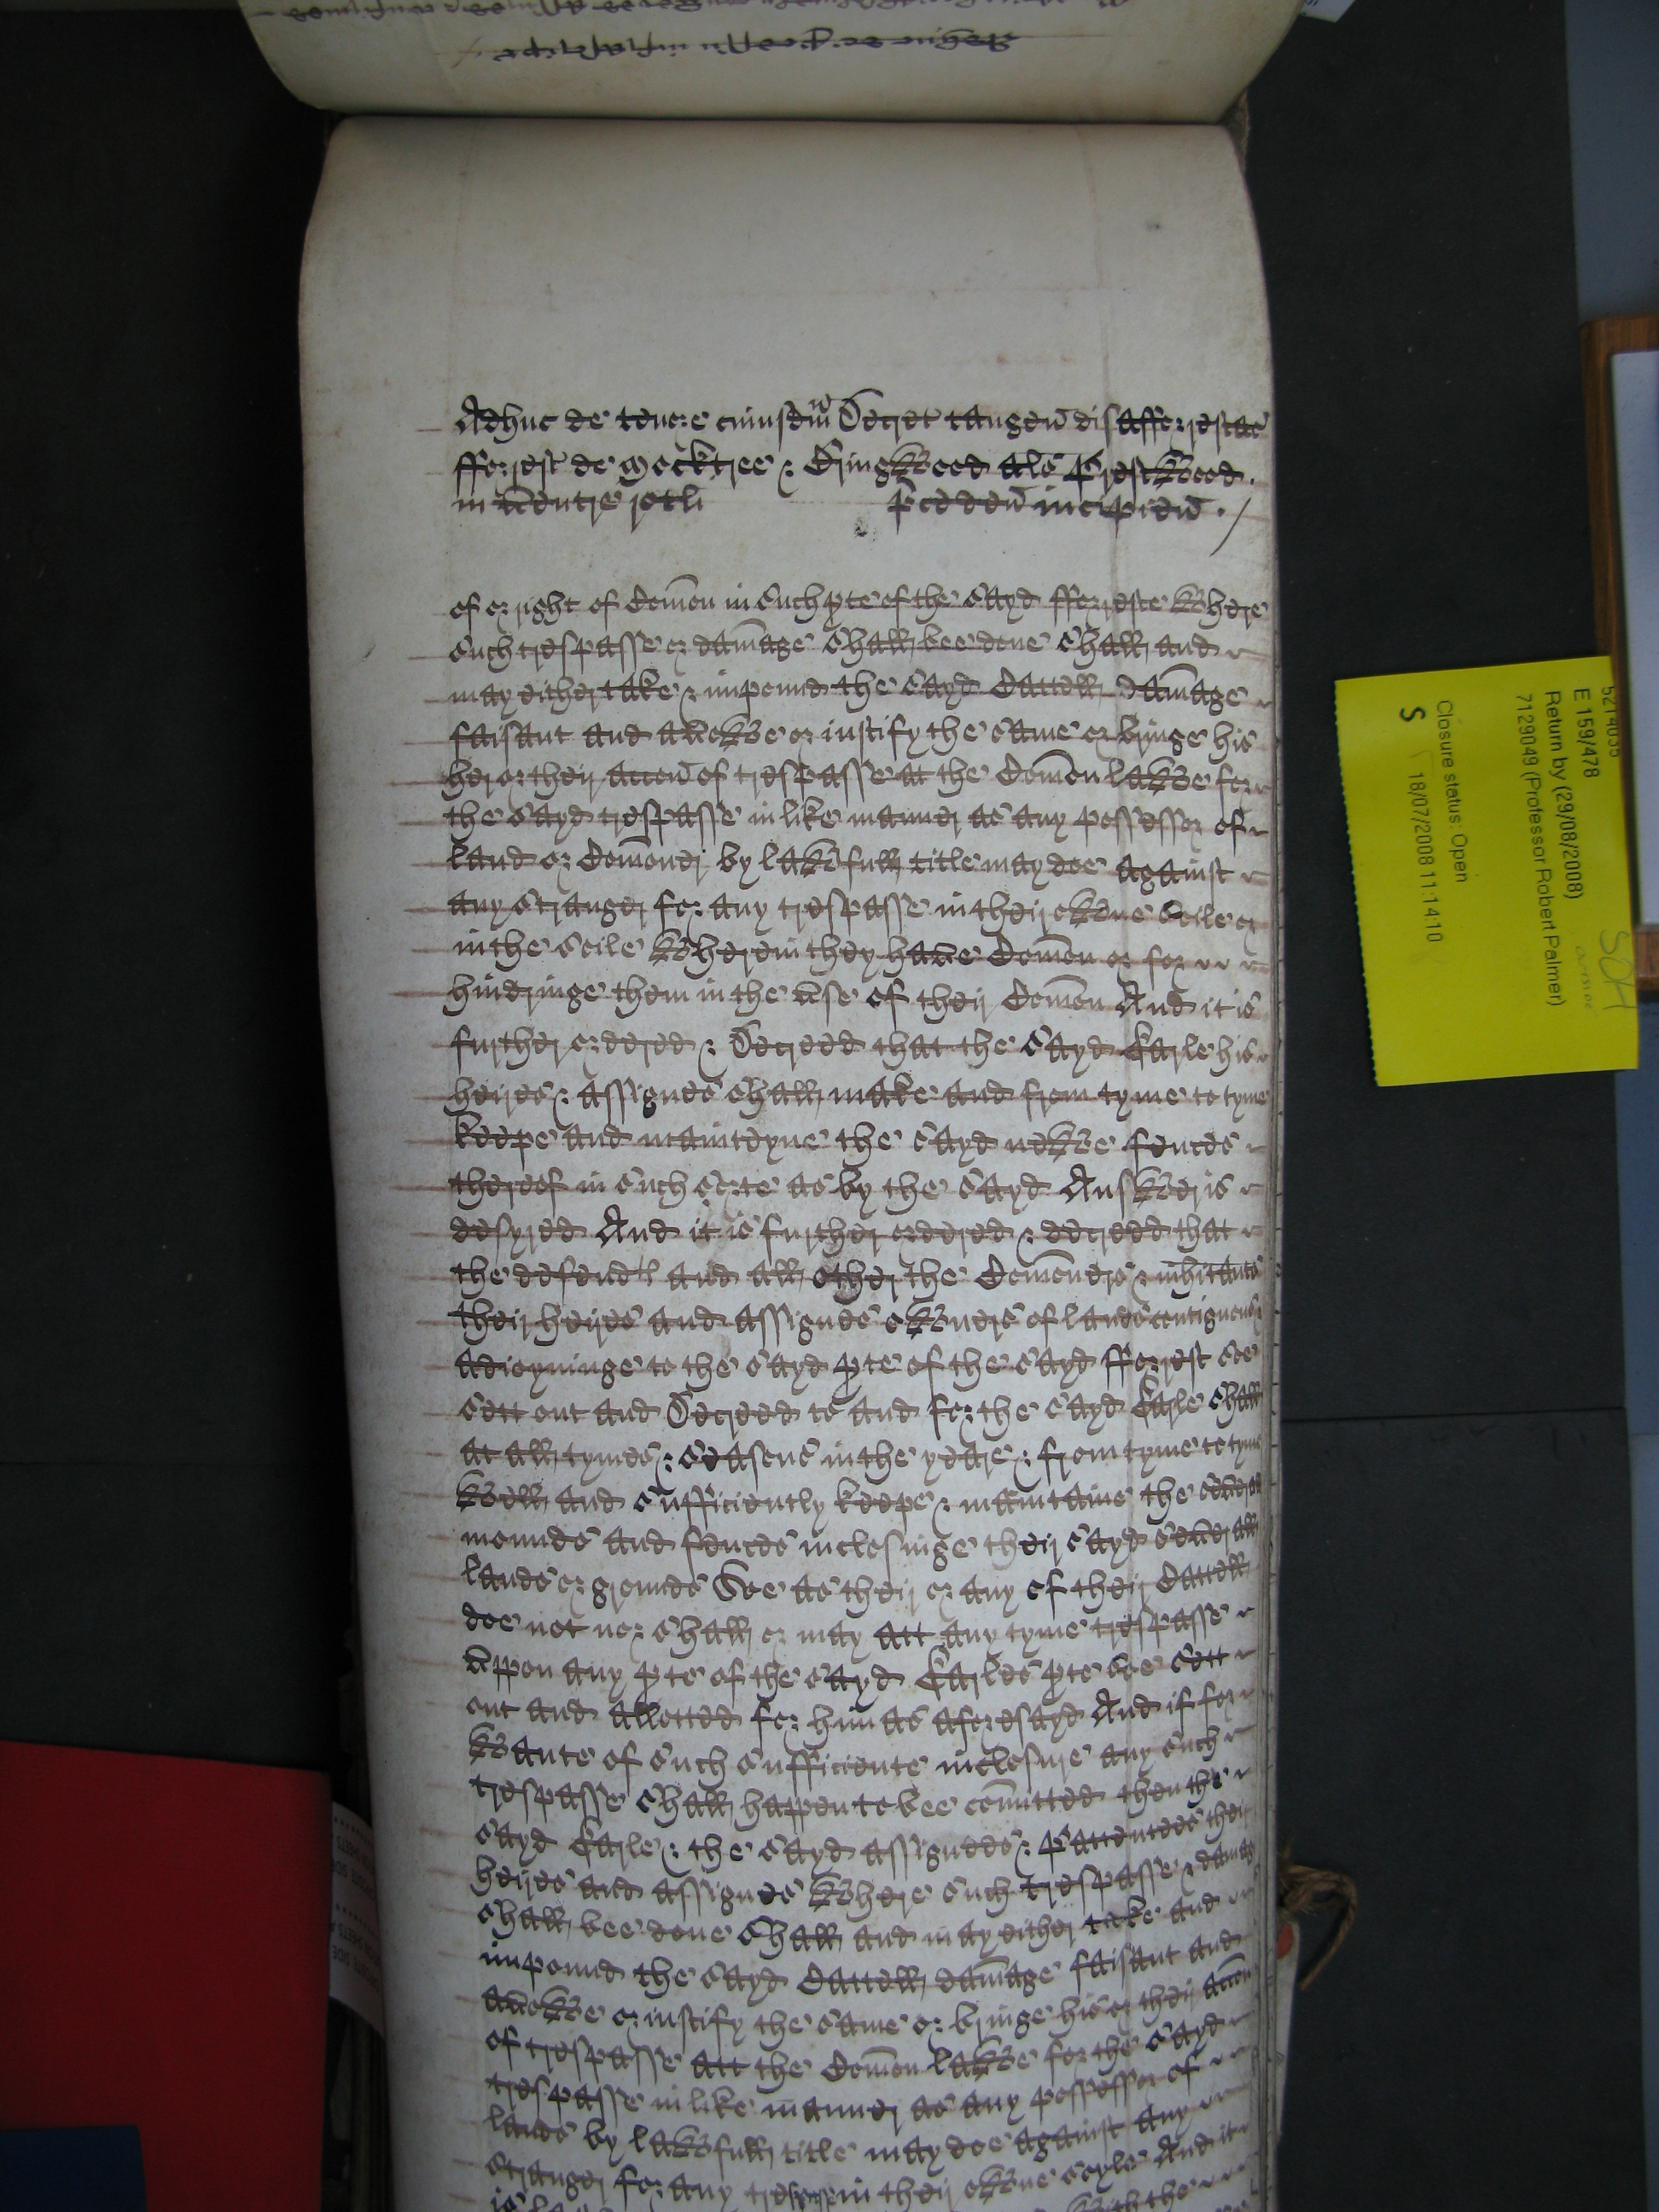 Adhuc de tenore cuiusdm Decret tangen disafforestac
fforest de Mocktree & Bringwood als Prestwood
in ventre rotli precedén incipién
of or right of Comon in such pte of the sayd fforeste where
such trespasse or damage shall bee done shall and
may either take & impound the sayd Cattell damage
faisant and avowe or iustify the same or bringe his
her or their accon of trespasse at the Comon lawe for
the sayd trespasse in like manner as any possessor of
land or Comoner by lawfull title may doe against
any stranger for any trespasse in their owne soile or
in the soile wherein they have Comon or for
hindringe them in the use of their Comon And it is
further ordered & Decreed that the sayd Earle his
heires & assignes shall make and from tyme to tyme
keepe and mainteyne the sayd newe fences
thereof in such sorte as by the sayd Answer is
desyred And it is further ordered & decreed that
the defendts and all other the Comoners & inhitants
their heires and assignes owners of lands contiguously
adioyninge to the sayd pte of the sayd fforest soe
sett out and Decreed to and for the sayd Earle shall
at all tymes & seasens in the yeare & from tyme to tyme
well and sufficiently keepe & maintaine the severall
mounds and fences inclosinge their sayd severall
lands or grounds Soe as their or any of their Cattell
doe not nor shall or may att any tyme trespasse
uppon any pte of the sayd Earles pte soe sett
out and allotted for him as aforesayd And if for
wante of such sufficiente inclosure any such
trespasse shall happen to bee comitted then the
sayd Earle & the sayd assignees & Pattentees their
heires and assignes where such trespasse & damage
shall bee done shall and may either take and
impound the sayd Cattell damage faisant and
avowe or iustify the same or bringe his or their accon
of trespasse att the Comon lawe for the sayd
trespasse in like manner as any possessor of
lands by lawfull title may doe against any
stranger for any trespasse in their owne soyle And it
is with the
E 159/478
Return by (29/08/2008)
7129049 (Professor Robert Palmer)
Closure status: Open
S 18/07/2008 11:14:10